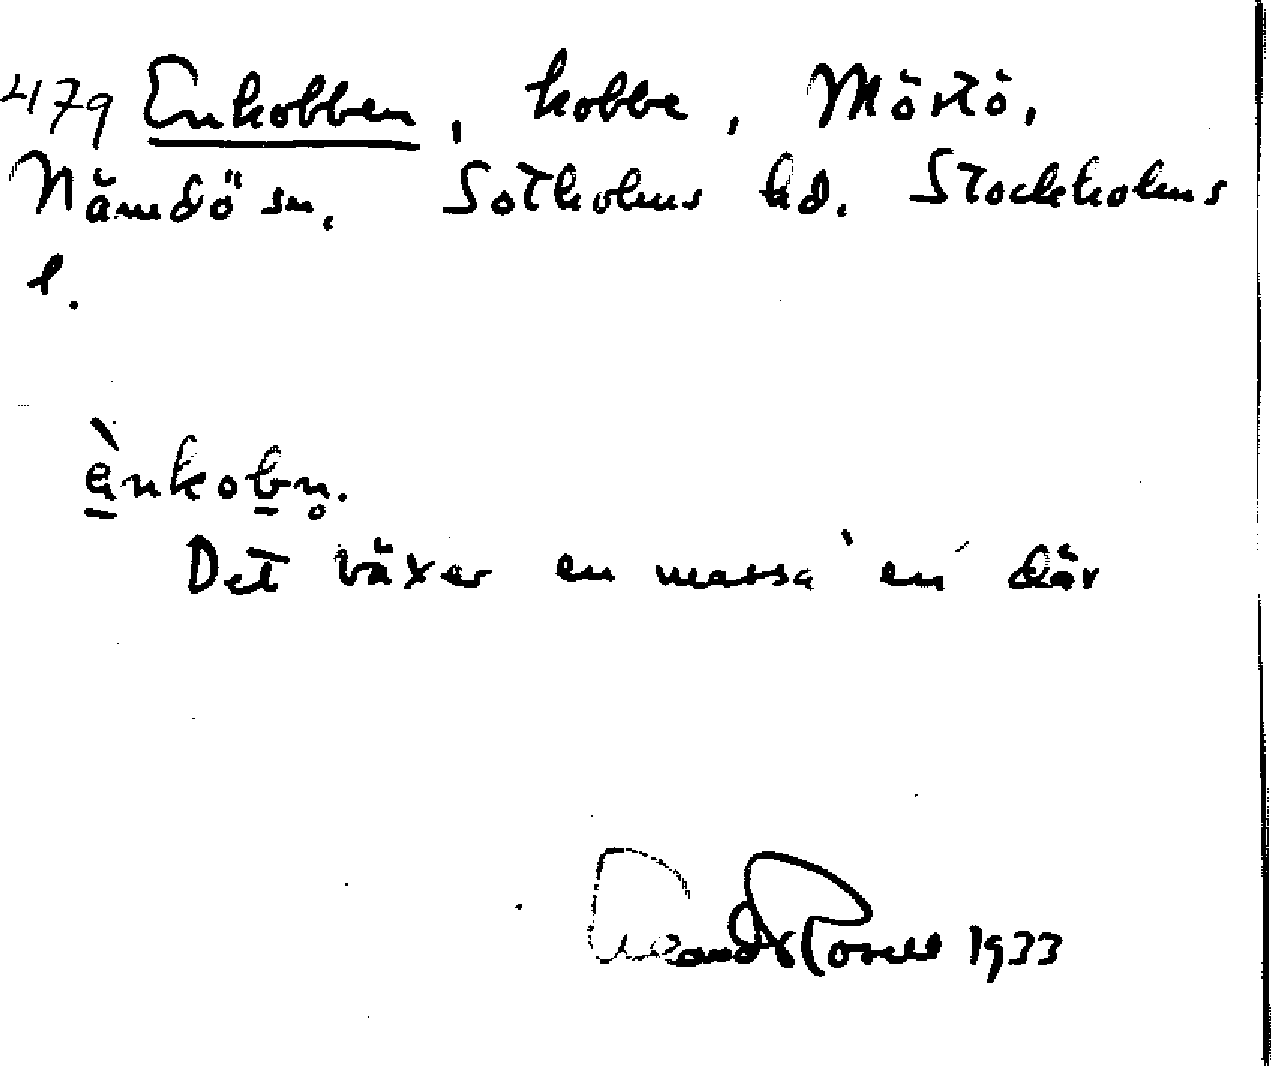 479 Enkobben, kobbe, Mörtö,
Nämdö sn. Sotholms hd. Stockholms
l.
ènkobn̥.
Det växer en massa `en´ där
1933